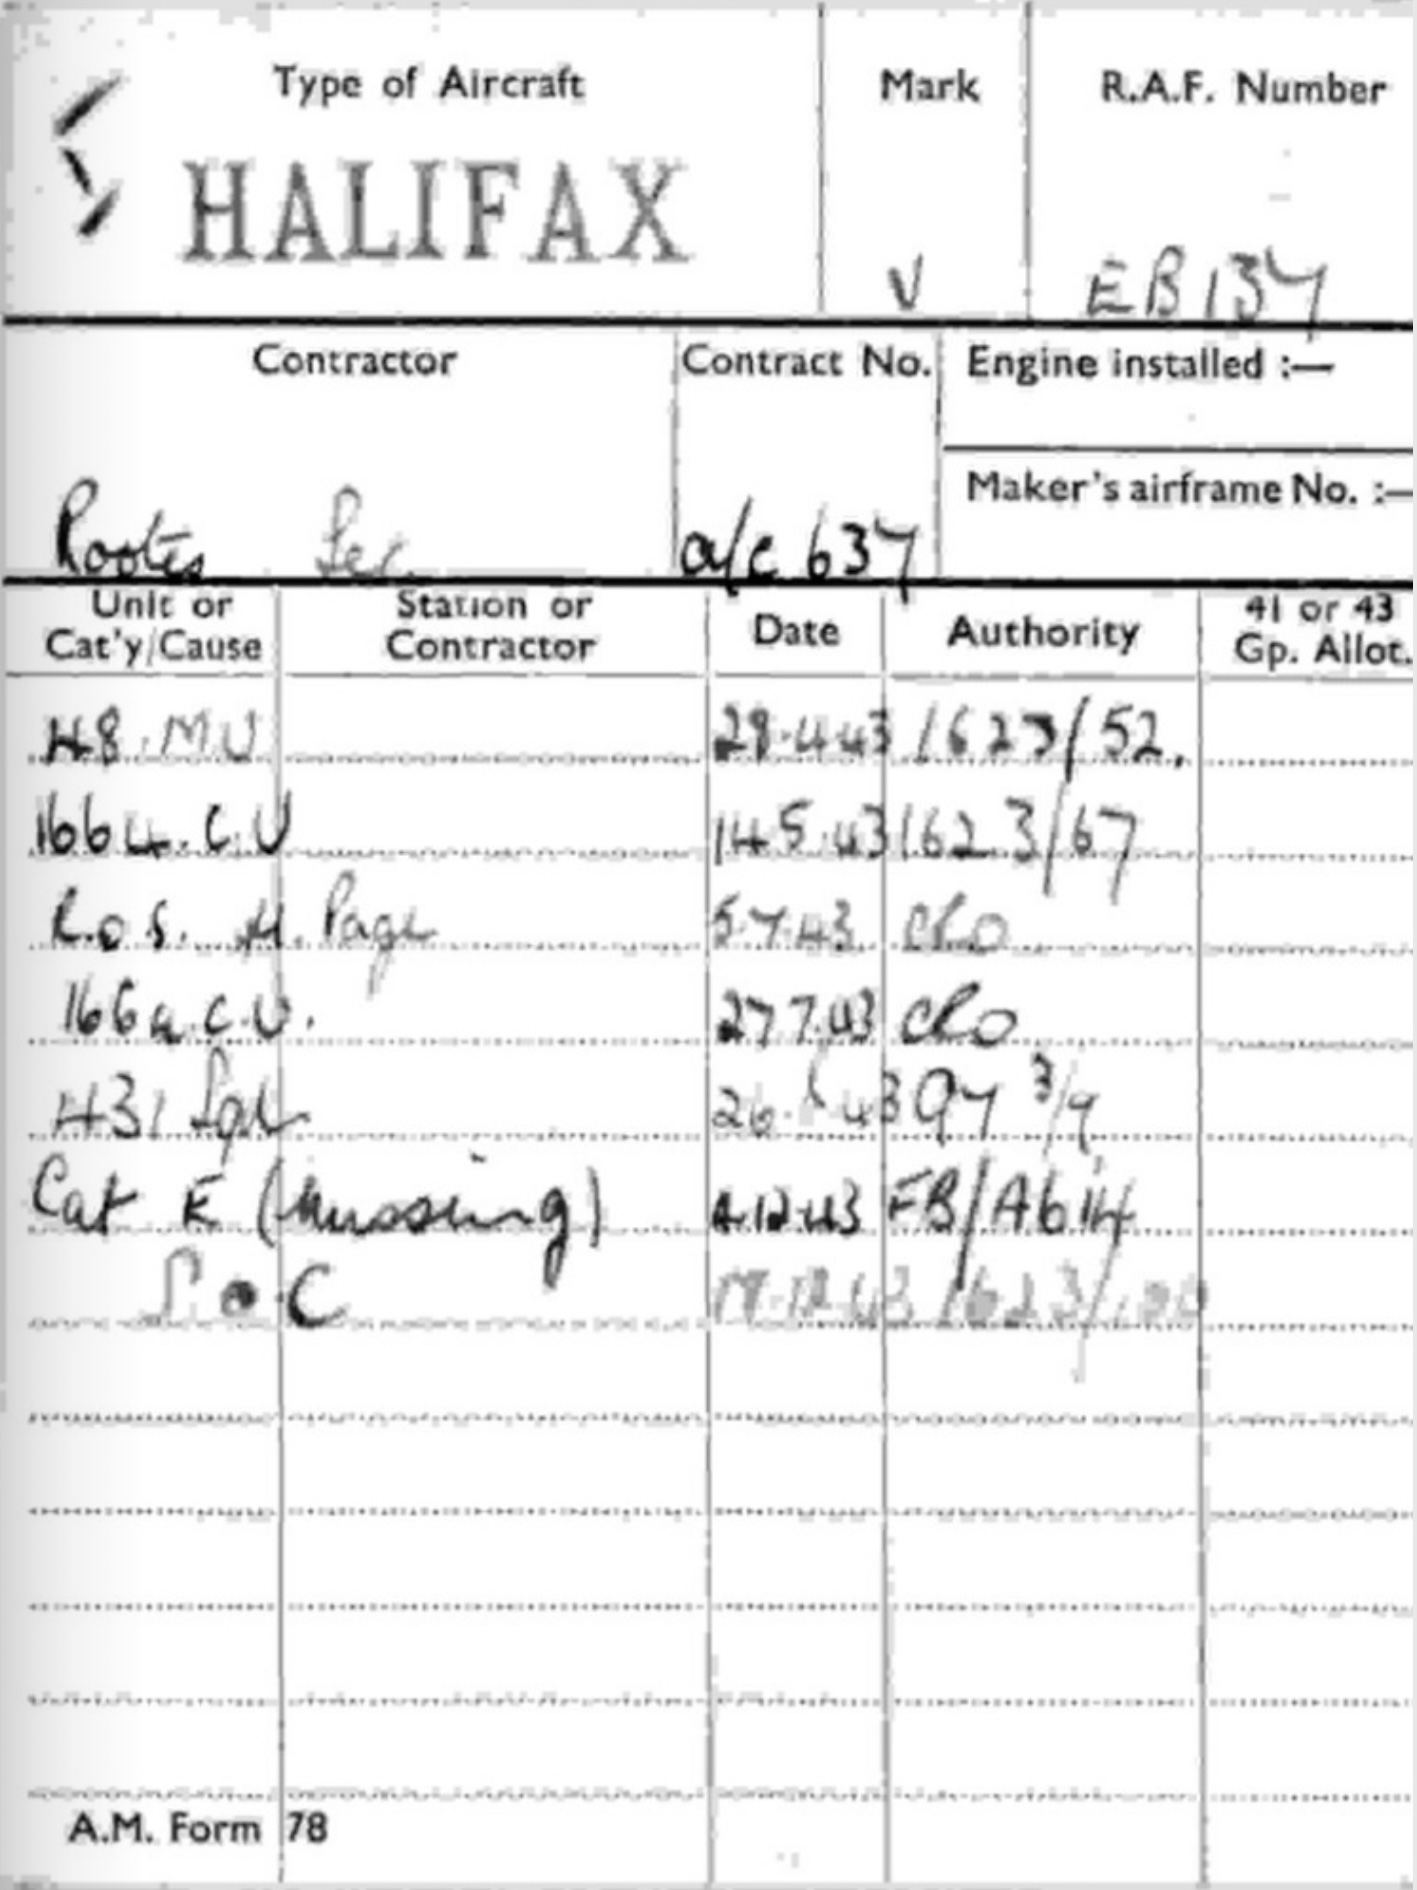 Type of Aircraft Mark R.A.F. Number
HALIFAX V EB137
Contractor Contract No. Engine installed :—
Maker's airframe No. :—
Rootes Sec a/c 637
Unit or Cat'y/Cause Station or Contractor Date Authority 41 or 43 Gp. Allot.
48 MU 29.4.43 1623/52.
1664.C.U 14.5.43 1623/67
R.o.S. H. Page 5.7.43 CRO
1664.C.U. 27.7.43 CRO
431 Sqn 43 Q7 3/9
Cat E (Missing) 4.12.43 FB/A614
S.O.C 1623/
A.M. Form 78